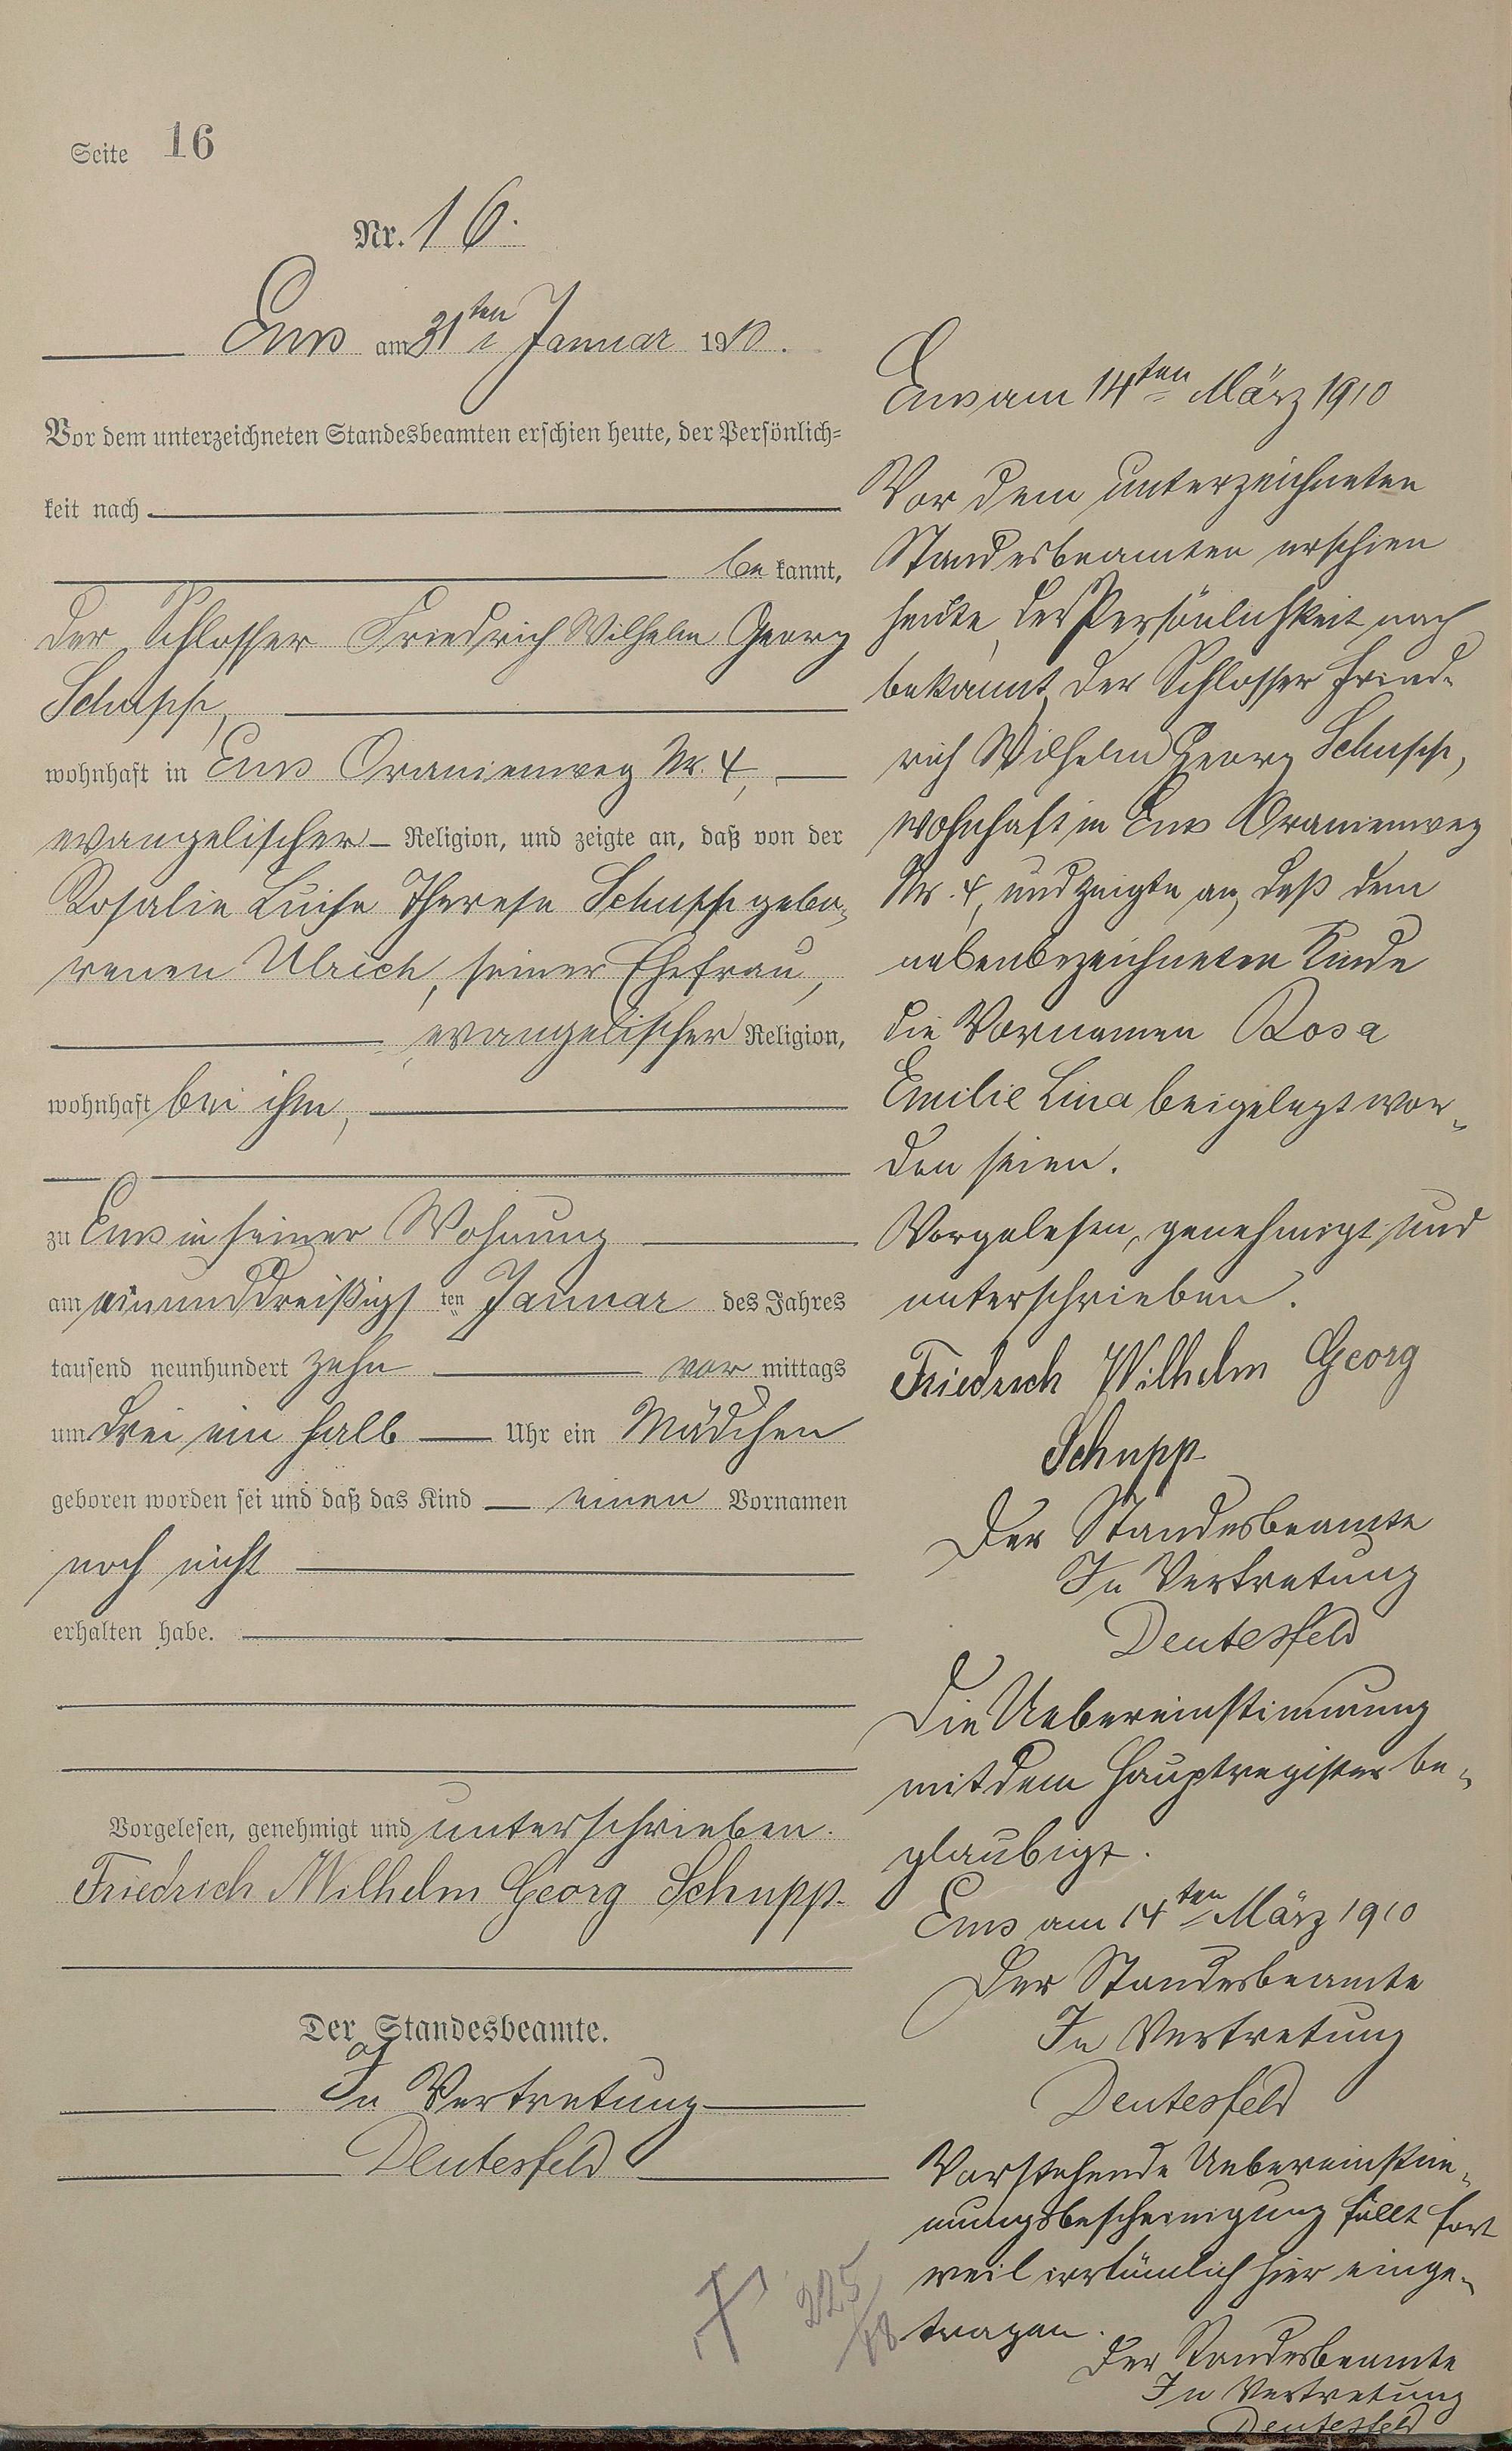 Seite 16
Nr. 16.
Ems am 31ten Januar 1910.
Vor dem unterzeichneten Standesbeamten erschien heute, der Persönlich-
keit nach
bekannt,
der Schlosser Friedrich Wilhelm Georg
Schupp,
wohnhaft in Ems Oranienweg Nr. 4,
evangelischer Religion, und zeigte an, daß von der
Rosalie Luise Therese Schupp gebo-
renen Ulrich, seiner Ehefrau,
evangelischer Religion,
wohnhaft bei ihm,
zu Ems in seiner Wohnung
am einunddreißigsten Januar des Jahres
tausend neunhundert zehn vormittags
um drei ein halb Uhr ein Mädchen
geboren worden sei und daß das Kind einen Vornamen
noch nicht
erhalten habe.
Vorgelesen, genehmigt und unterschrieben.
Friedrich Wilhelm Georg Schupp.
Der Standesbeamte.
In Vertretung
Deutesfeld
Ems am 14ten März 1910
Vor dem unterzeichneten
Standesbeamten erschien
heute, der Persönlichkeit nach
bekannt, der Schlosser Fried-
rich Wilhelm Georg Schupp,
wohnhaft in Ems Oranienweg
Nr. 4, und zeigte an, daß dem
nebenbezeichneten Kinde
die Vornamen Rosa
Emilie Lina beigelegt wor-
den seien.
Vorgelesen, genehmigt und
unterschrieben.
Friedrich Wilhelm Georg
Schupp.
Der Standesbeamte
In Vertretung
Deutesfeld
Die Uebereinstimmung
mit dem Hauptregister be-
glaubigt.
Ems am 14ten März 1910
Der Standesbeamte
In Vertretung
Deutesfeld
Vorstehende Uebereinstim-
mungsbescheinigung fällt fort
weil irrtümlich hier einge-
tragen.
Der Standesbeamte
In Vertretung
Deutesfeld
225